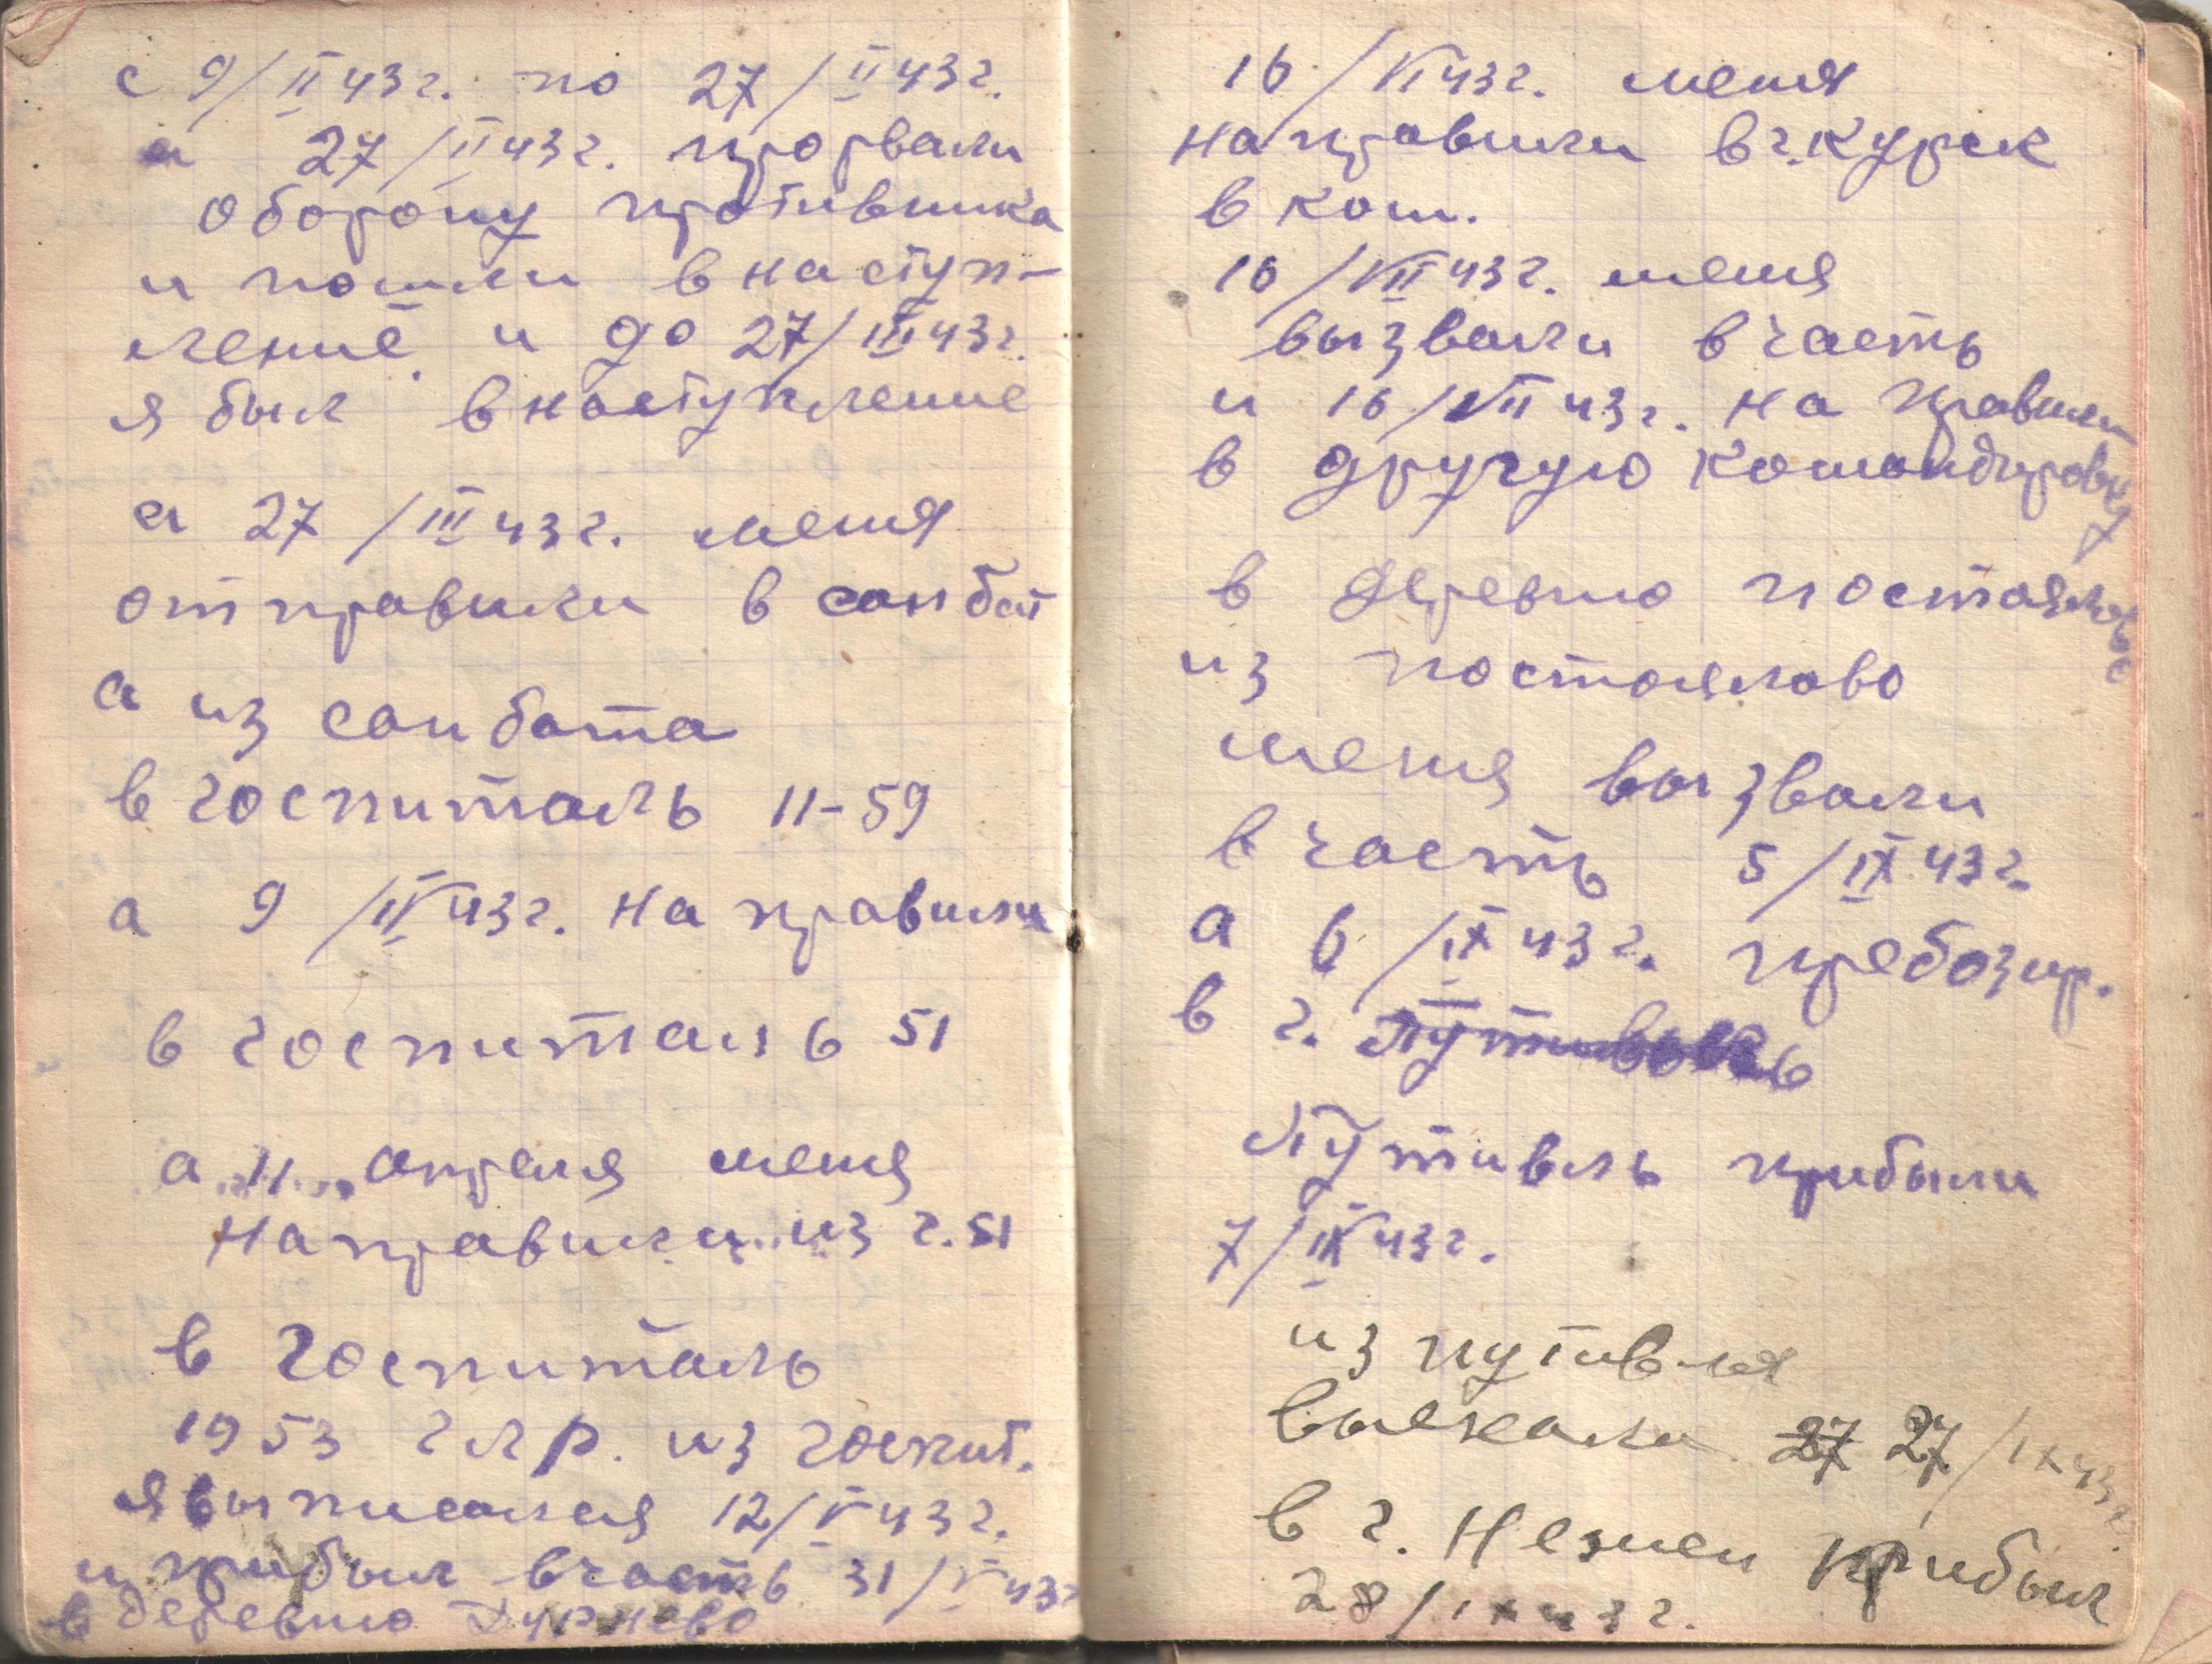 с 9/II 43г. по 27/II 43г.
а 27/II 43г. прорвали
оборону противника
и пошли в наступ-
ление и до 27/III 43г.
я был в наступление
а 27/III 43г. меня
отправили в санбат
а из санбата
в госпиталь 11-59
а 9/IV 43г. направили
в госпиталь 51
а 11 апреля меня
направили из г. 51
в госпиталь
1953 глр. из госпит.
я выписался 12/V 43г.
и прибыл в часть 31/V 43г
в деревню Дурнево
16/VI 43г. меня
направили в г. Курск
в ком.
16/VII 43г. меня
вызвали в часть
и 16/VII 43г. направили
в другую командировку
в деревню постоялово
из постоялово
меня вызвали
в часть 5/IX 43г.
а 6/IX 43г. пребазир.
в г.
Путивль прибыли
7/IX 43г.
из путивля
выехали 27 27/IX 43г.
в г. Нежен прибыл
28/IX 43г.